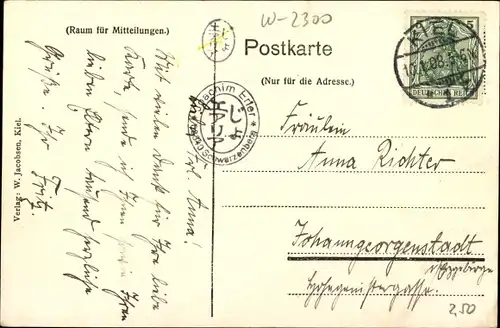 W-2300
(Raum für Mitteilungen.)
Postkarte
(Nur für die Adresse.)
KIEL
5
DEUTSCHES REICH
Joachim Erler
Schwarzenberg
Verlag: W. Jacobsen, Kiel.
Frl. Anna!
Mit vielen Dank für Ihre liebe
Karte sende ich Ihnen Ihren
lieben Eltern tausend herzliche
Grüße. Ihr
Fritz.
Fräulein
Anna Richter
Johanngeorgenstadt
i/Erzgebirge
2,50